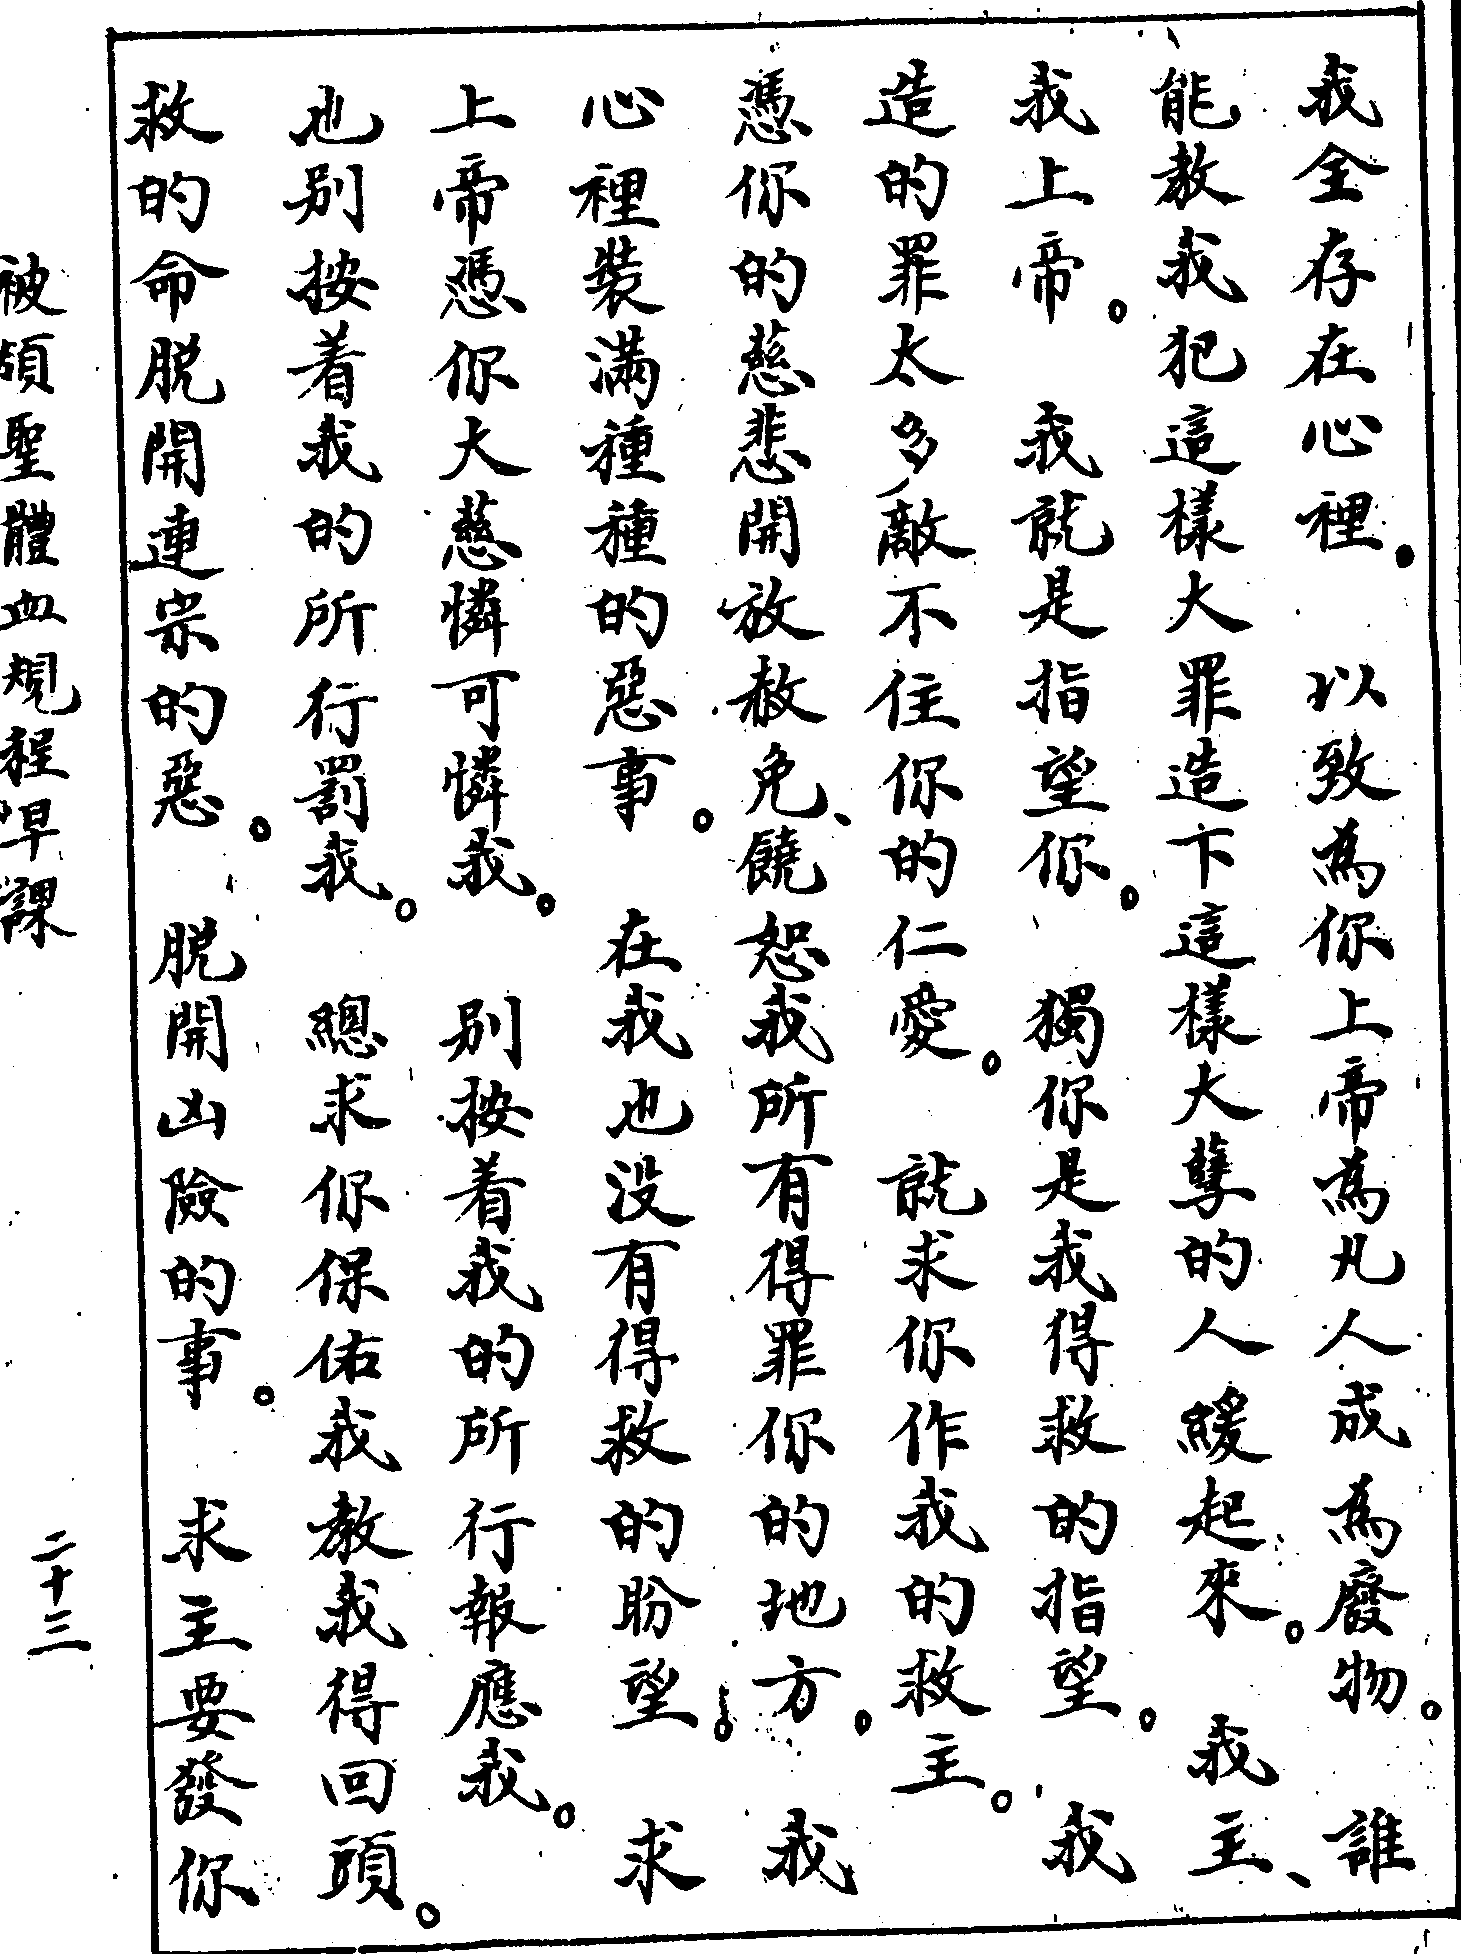 我全存在心裡。以致為你上帝為凡人成為廢物。誰
能教我犯這樣大罪造下這樣大孽的人緩起來。我主、
我上帝。我就是指望你。獨你是我得救的指望。我
造的罪太多敵不住你的仁愛。就求你作我的救主。
憑你的慈悲開放赦免、饒恕我所有得罪你的地方。我
心裡裝滿種種的惡事。在我也没有得救的盼望。求
上帝憑你大慈憐可憐我。别按着我的所行報應我。
也别按着我的所行罰我。總求你保佑我教我得回頭。
救的命脱開連宗的惡。脱開凶險的事。求主要發你
被領聖體血規程早課
二十三